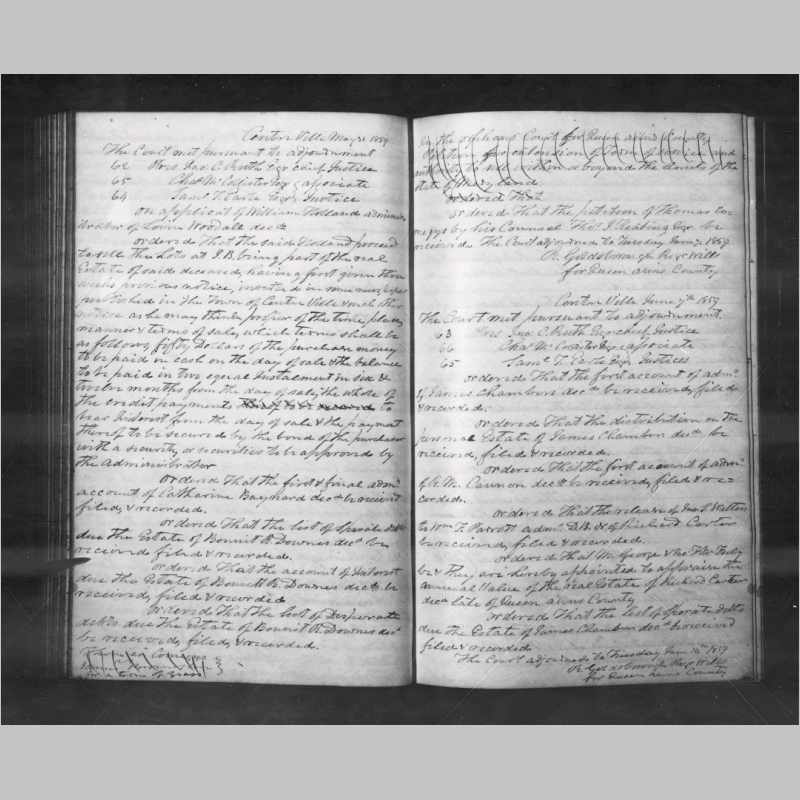 Centre Ville May 31 1859
The Court met pursuant to adjournment
62 Hon Jas C. Ruth Esqr chief Justice
65 Chas McCollister Esqr associate
64 Saml T. Earle Esqr Justice
on applicat of William Holland adminis
trator of Lovin Woodall decd
ordered that the said Holland proceed
to sell the Lots at I.B. being part of the real
Estate of said deceased, having first given three
weeks previous notice, inserted in some newspaper
published in the Town of Centre Ville & such other
notice as he may think proper of the time, place,
manner & terms of sale, which terms shall be
as follows, fifty Dollars of the purchase money
to be paid in cash on the day of sale & the balance
to be paid in two equal instalment in six &
twelve months from the day of sale, the whole of
the credit payments to
bear Interest from the day of sale & the payment
thereof to be secured by the bond of the purchaser
with a security or securities to be approved by
the Administrator
ordered That the first & final admn
account of Catharine Baynard decd be received
filed, & recorded.
ordered That the list of Sperate debts
due the Estate of Bennit R. Downes decd be
received filed & recorded.
ordered That the account of Interest
due the Estate of Bennett R. Downes decd be
received, filed & recorded
ordered That the List of Desperate
debts due the Estate of Bennit R Downes decd
be received, filed, & recorded.
for a term of years
In the orphans Court for Queen anns County
state of Maryland.
ordered That
ordered That the petition of Thomas
by his Counsel Thos J Keating Esqr be
received The Court adjourned to Tuesday June 7 1859
R. Goldsborough Regr Wills
for Queen anns County
Centre Ville June 7th 1859
The Court met pursuant to adjournment.
63 Hon Jas. C. Ruth Esqr chief Justice
66 Chas McCollister Esqr associate
65 Saml T. Earle Esqr Justices
ordered That the first account of admn
of James Chambers decd be received, filed
& recorded.
ordered That the distribution on the
personal Estate of James Chambers decd be
received, filed & recorded.
ordered That the first account of admn
of M. Cannon decd be received, filed & re-
corded.
ordered That the release of Jas S. Walters
to Wm F. Parrott admr D.B.N of Richard Carter
be received, filed & recorded.
ordered That M. George &
be & They are hereby appointed to appraise the
annual Value of the real Estate of Richard Carter
decd late of Queen anns County
ordered That the list of sperate debts
due the Estate of James Chambers decd be received
filed & recorded
The Court adjourned to Tuesday June 14th 1859
R. Goldsborough Regr Wills
for Queen anns County